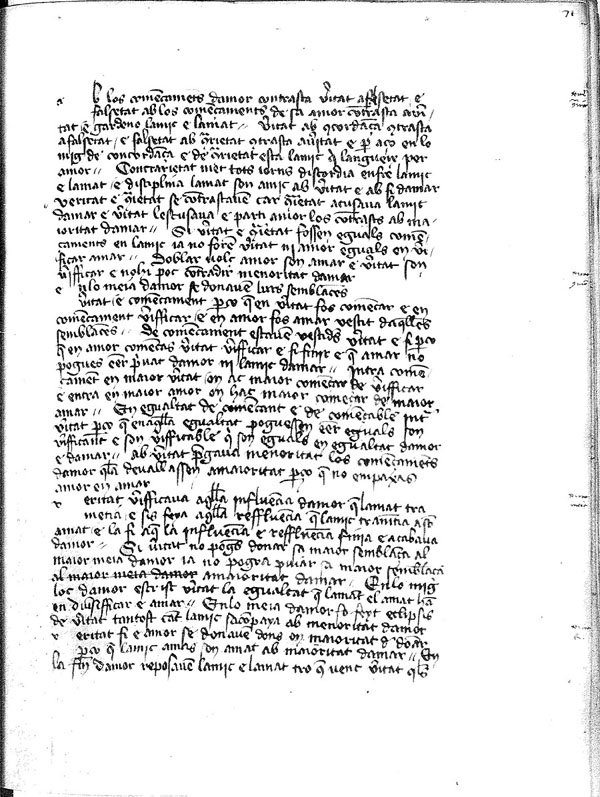 71
a b los comēcamēts damor contrasta v̄itat a falsetat / e
falsetat ab los comēcaments de sa amor cōtrasta
tat e gardeno lamic e lamat // v̄itat ab cordāça cōtrasta
a falsetat / e falsetat ab q̄rietat cōtrasta a v̄itat e p̄ aço en lo
mig de concordāça e de q̄rietat esta lamic q̄ langueix per
amor // Contrarietat met tots iorns discordia enfre lamic
e lamat e disciplina lamat son amic ab v̄itat e ab fe damar
veritat e q̄rietat se cōtrastauen car q̄rietat acusaua lamic
damar e v̄itat lescusaua e parti amor los cōtrasts ab ma
ioritat damar // Si v̄itat e q̄rietat fossen eguals comē
caments en lamic ia no foren v̄itat ni amor eguals en v̄i
ficar amar // Doblar volc amor son amar e v̄itat son
v̄ificar e noy poc cōtradir menoritat damar
e n lo meia damor se donauen lurs semblāces
v̄itat e comēcament p̄ço q̄ en v̄itat fos comēcar e en
comēcament v̄ificar e en amor fos amar vestit daq̄lles
semblāces // De comēcament estauen vestids v̄itat e fi p̄ço
q̄ en amor comēcas v̄itat v̄ificar e fi finir e q̄ amar no
pogues eēr p̄uat damor ni lamic damar // Intra comē
cament en maior v̄itat on ac maior comēcar de v̄ificar
e entra en maior amor on hac maior comēcar de maior
amar // En egualtat de comēcant e de comēcable
v̄itat p̄ço q̄ en aq̄lla egualtat poguessen eēr eguals son
v̄ificant e son v̄ificable q̄ son eguals en egualtat damor
e damar // ab v̄itat p̄gaua menoritat los comēcamets
damor q̄ la deuallassen a maioritat p̄ço q̄ no empaxas
amor en amar
v eritat v̄ificaua aq̄lla influēcia damor q̄ lamat tra
metia e sis feya aq̄lla reffluēcia q̄ lamic trametia a son
amat e la fi aq̄ la influēcia e reffluēcia finia e acabaua
damor // Si v̄itat no pogr̄ donar sa maior semblāca al
maior meia damor ia no pogra puiar a maior semblāca
al maior meia damor a maioritat damar // En lo mig
loc damor escrist v̄itat la egualtat q̄ lamat el amat ha
en diuersificar e amar // En lo meia damor fo feyt eclipsis
de v̄itat tantost cāt lamic sacōpaya ab menoritat damor
v eritat fi e amor se donauen dons en maioritat d doar
p̄ço q̄ lamic amas son amat ab maioritat damar // En
la fin damor reposauen lamic e lamat tro q̄ venc v̄itat